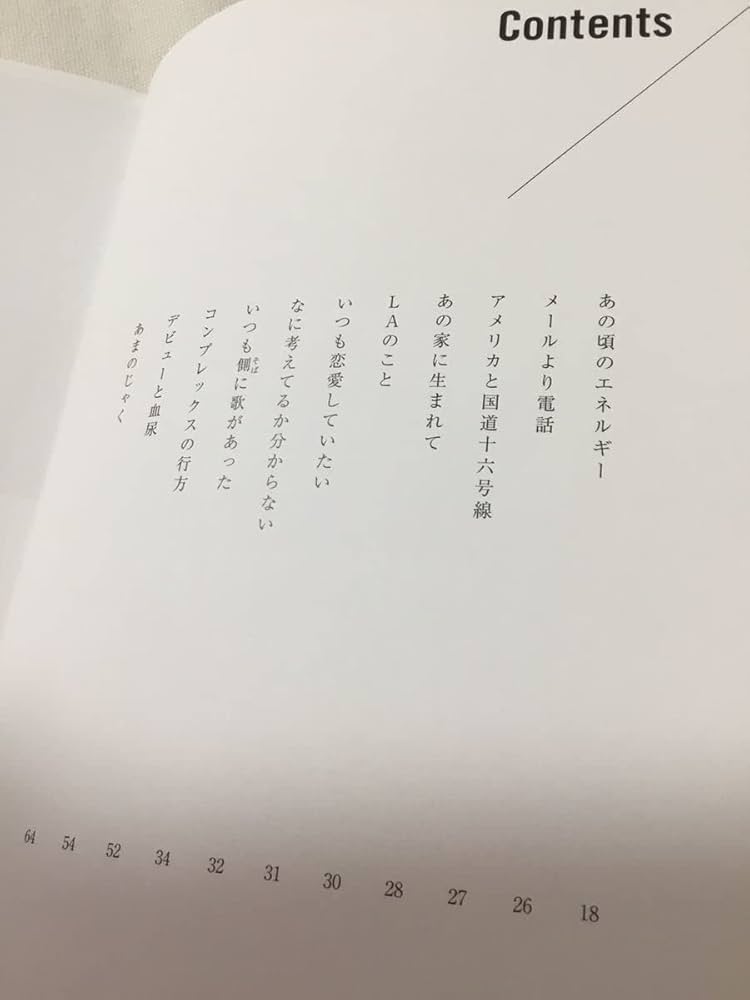 Contents
あの頃のエネルギー
メールより電話
アメリカと国道十六号線
あの家に生まれて
LAのこと
いつも恋愛していたい
なに考えてるか分からない
いつも側に歌があった
そば
コンプレックスの行方
デビューと血尿
あまのじゃく
18
26
27
28
30
31
32
34
52
54
64